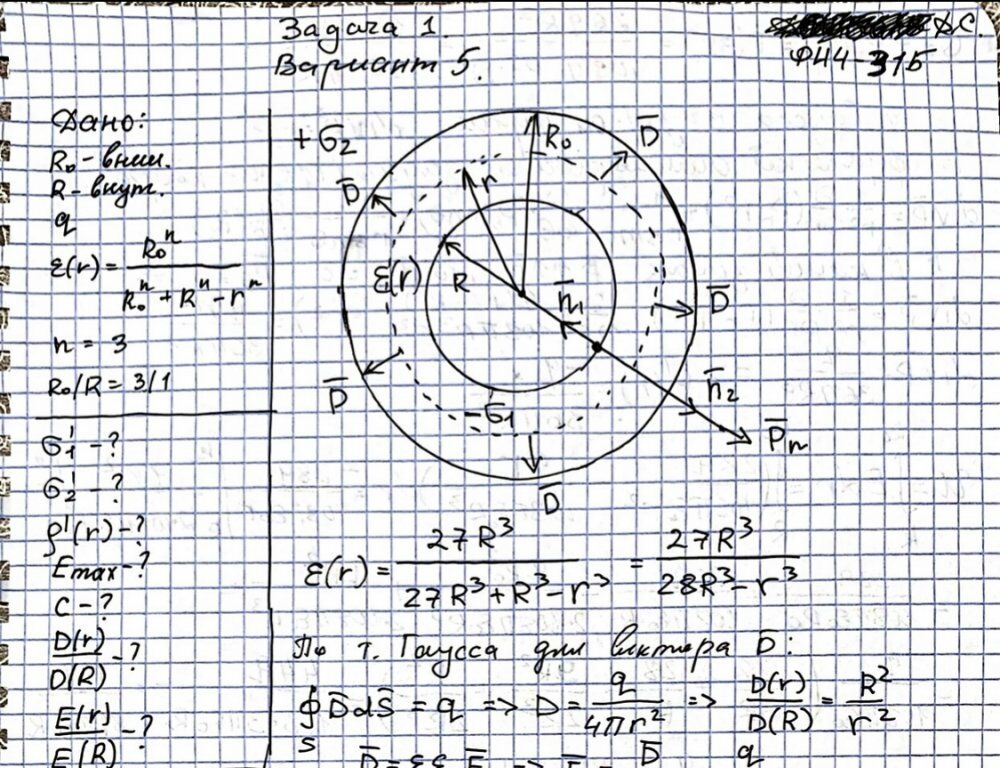 Задача 1.
Вариант 5.
ДС.
ФН4-31Б
Дано:
R₀ - внеш.
R - внут.
q
ε(r) = R₀ⁿ / (R₀ⁿ + Rⁿ - rⁿ)
n = 3
R₀/R = 3/1
σ₁' - ?
σ₂' - ?
ρ'(r) - ?
Emax - ?
C - ?
D(r)/D(R) - ?
E(r)/E(R) - ?
+σ₂
R₀
D̅
D̅
r
ε(r)
R
n̅₁
D̅
D̅
-σ₁
n̅₂
P̅n
D̅
ε(r) = 27R³ / (27R³ + R³ - r³) = 27R³ / (28R³ - r³)
По т. Гаусса для вектора D:
∮ₛ D̅dS̅ = q => D = q / 4πr² => D(r)/D(R) = R²/r²